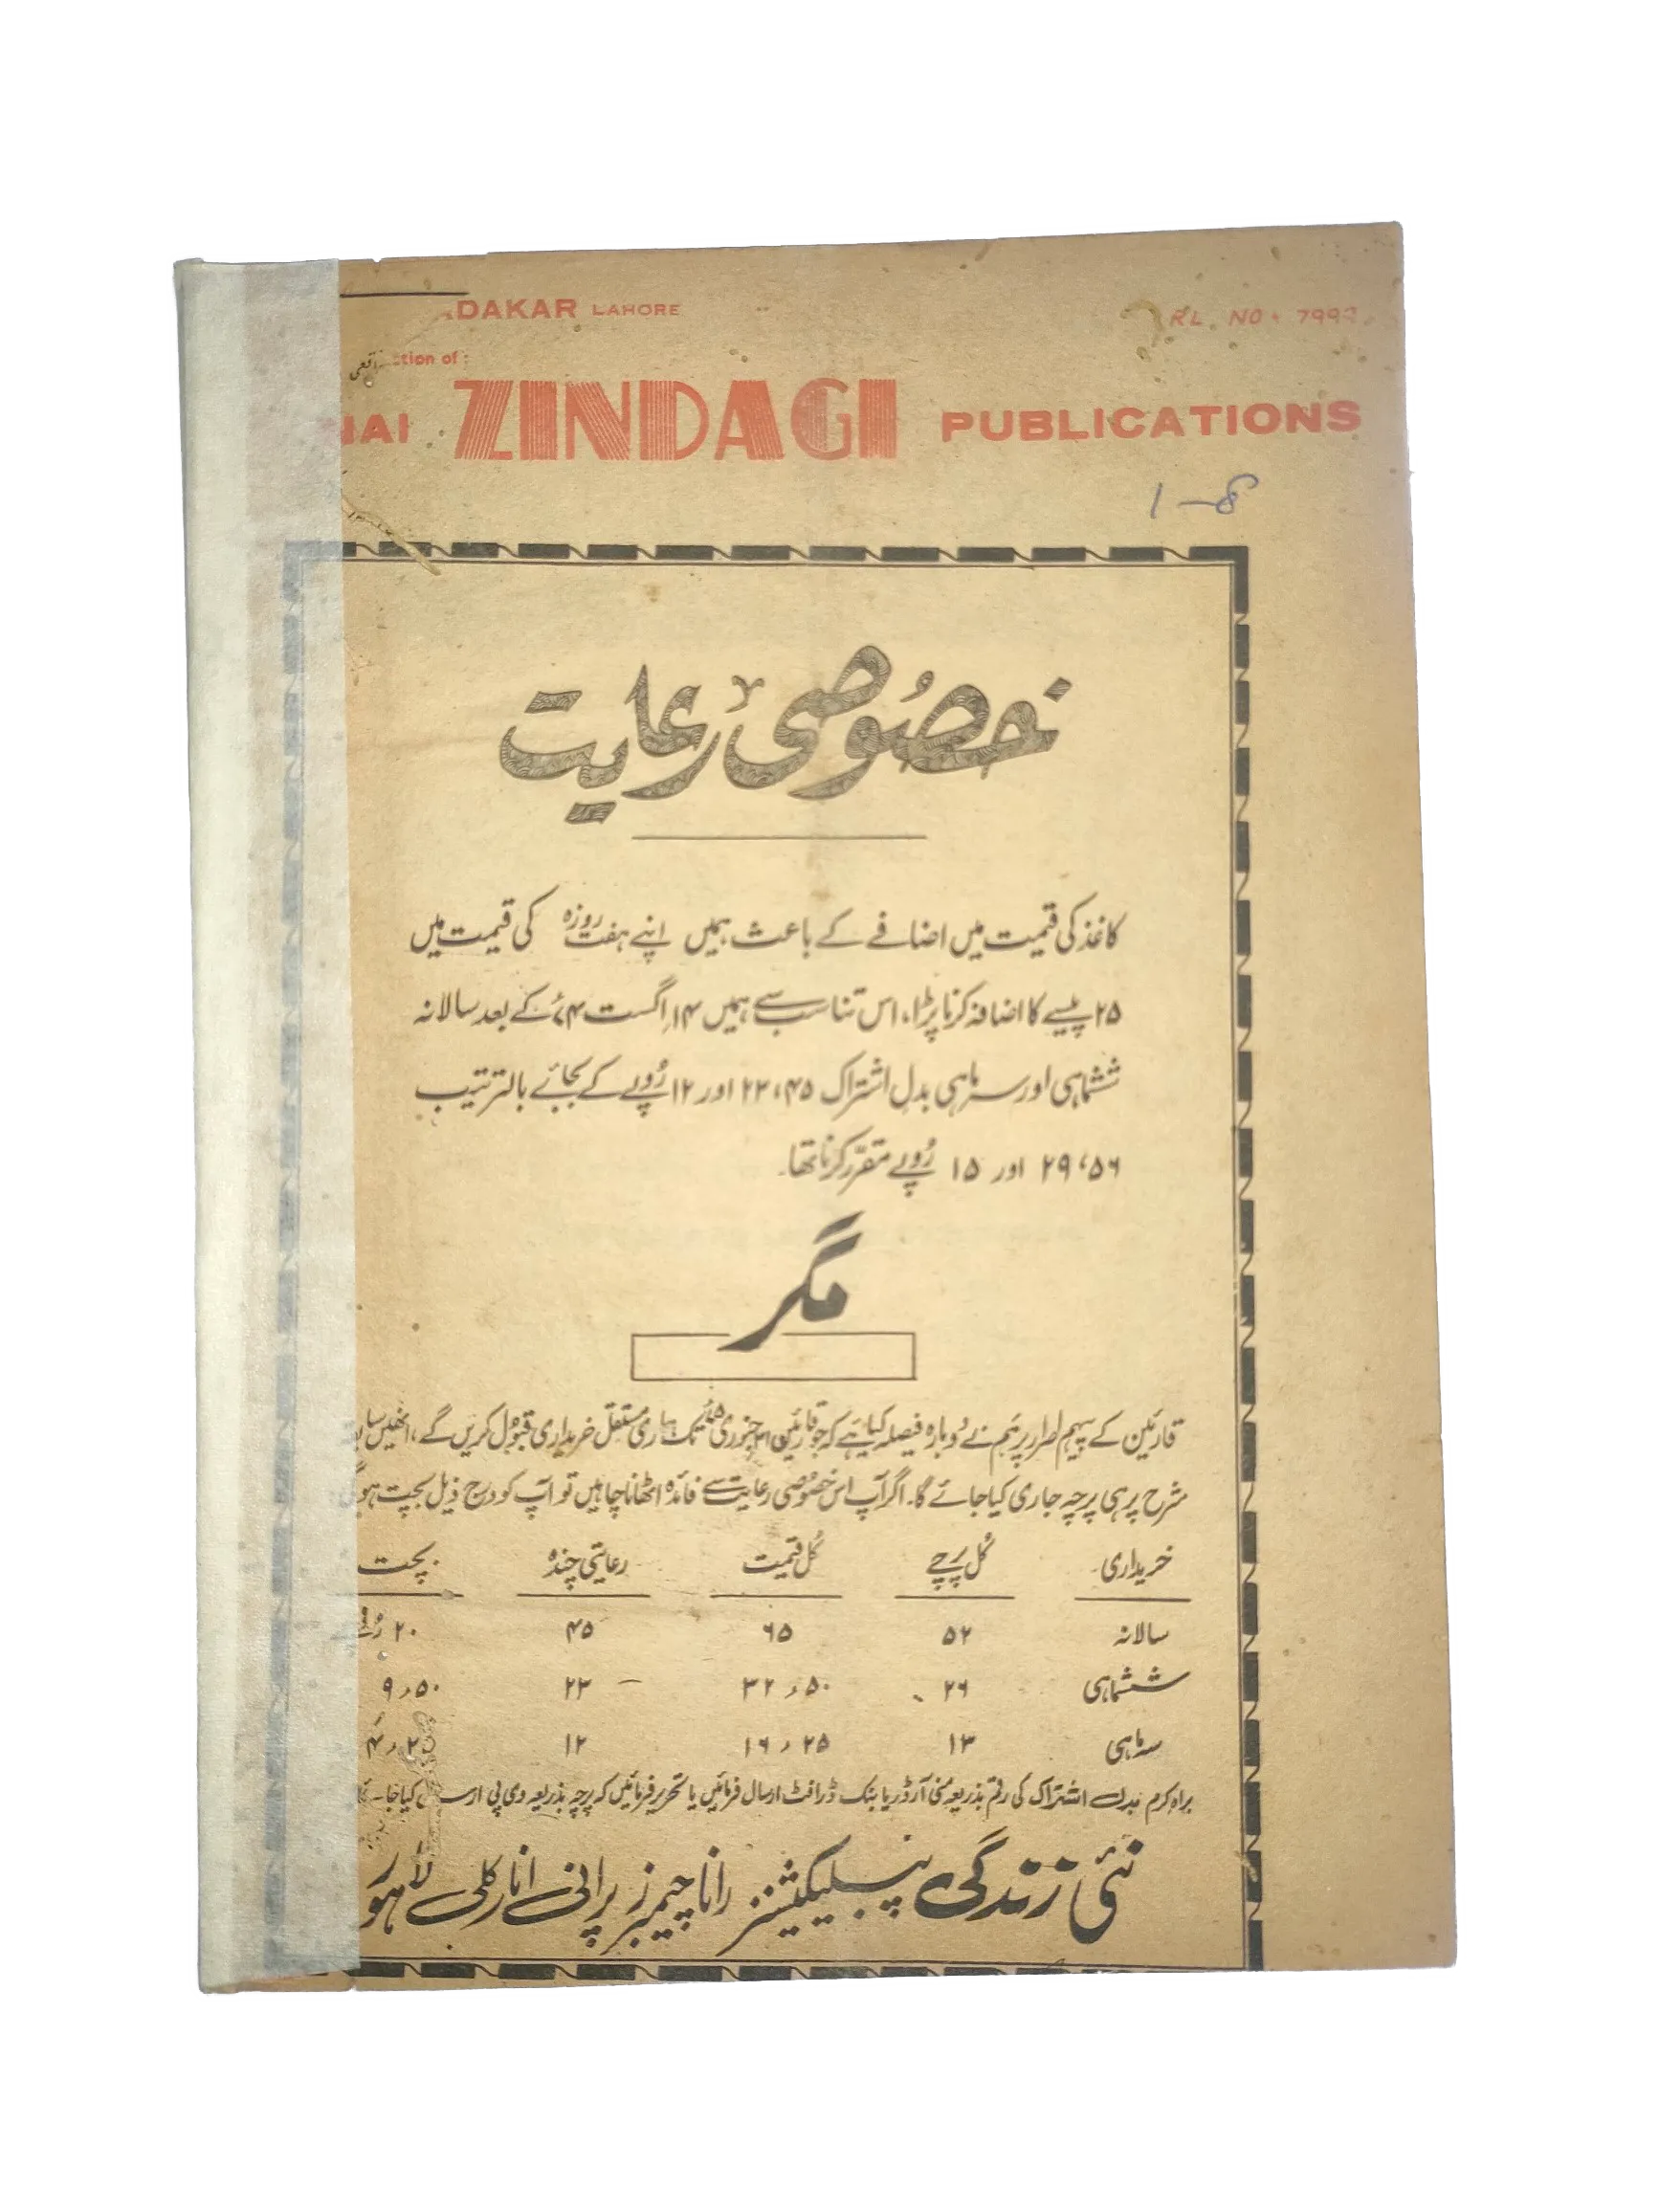 DAKAR LAHORE
RL. NO. 7992
ction of :
IAI ZINDAGI PUBLICATIONS
1-8
خصُوصی رعایت
کاغذ کی قیمت میں اضافے کے باعث ہمیں اپنے ہفت روزہ کی قیمت میں
۲۵ پیسے کا اضافہ کرنا پڑا، اس تناسب سے ہمیں ۱۴ اگست ۷۴ء کے بعد سالانہ
ششماہی اور سہ ماہی بدلِ اشتراک ۴۵، ۲۳ اور ۱۲ رُوپے کے بجائے بالترتیب
۵۶، ۲۹ اور ۱۵ رُوپے مقرّر کرنا تھا۔
مگر
قارئین کے پیہم اصرار پر ہم نے دُوبارہ فیصلہ کیا ہے کہ جو قارئین جنوری تک ہماری مستقل خریداری قبُول کریں گے، انھیں
شرح پر ہی پرچہ جاری کیا جائے گا۔ اگر آپ اس خصُوصی رعایت سے فائدہ اٹھانا چاہیں تو آپ کو درج ذیل بچت ہو
خریداری کُل پرچے کُل قیمت رعایتی چندہ بچت
سالانہ ۵۲ ۶۵ ۴۵ ۲۰
ششماہی ۲۶ ۳۲٫۵۰ ۲۳ ۹٫۵۰
سہ ماہی ۱۳ ۱۶٫۲۵ ۱۲
براہ کرم بدل اشتراک کی رقم بذریعہ منی آرڈر یا بنک ڈرافٹ ارسال فرمائیں یا تحریر فرمائیں کہ پرچہ بذریعہ وی پی ارسال کیا جائے
نئی زندگی پبلیکیشنز رانا چیمبرز پرانی انارکلی لاہور